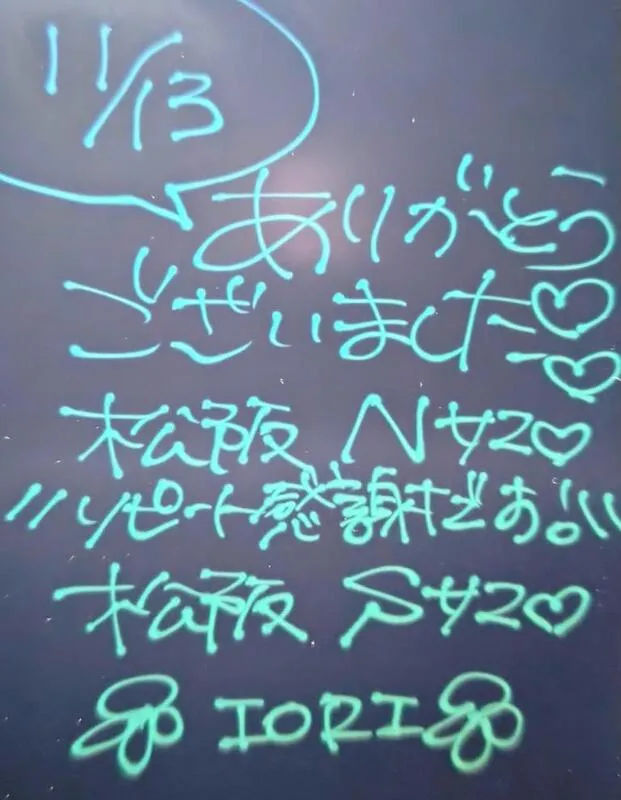 11/13
ありがとう
ございました♡
松阪 Nサマ♡
\\リピート感謝だぁ!//
松阪 Sサマ♡
IORI